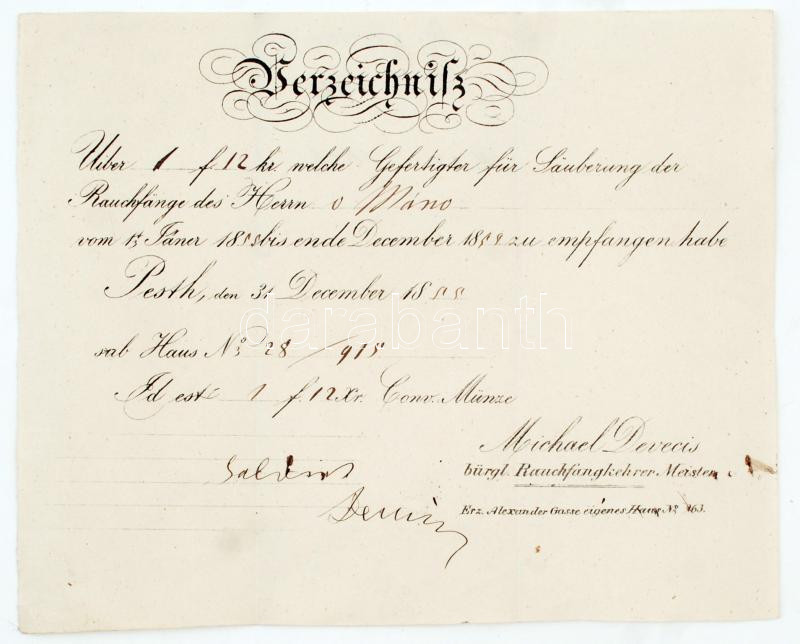 Verzeichniſz
Uiber 1 f. 12 kr. welche Gefertigter für Säuberung der
Rauchfänge des Herrn v Máno
vom 1t Jäner 1855 bis ende December 1855 zu empfangen habe
Pesth, den 31 December 1855
sab Haus No 28/915
Id est 1 f. 12 Xr. Conv. Münze
Michael Devecis
bürgl. Rauchfangkehrer-Meister
Erz. Alexander Gasse eigenes Haus No 163.
Saldirt
darabanth